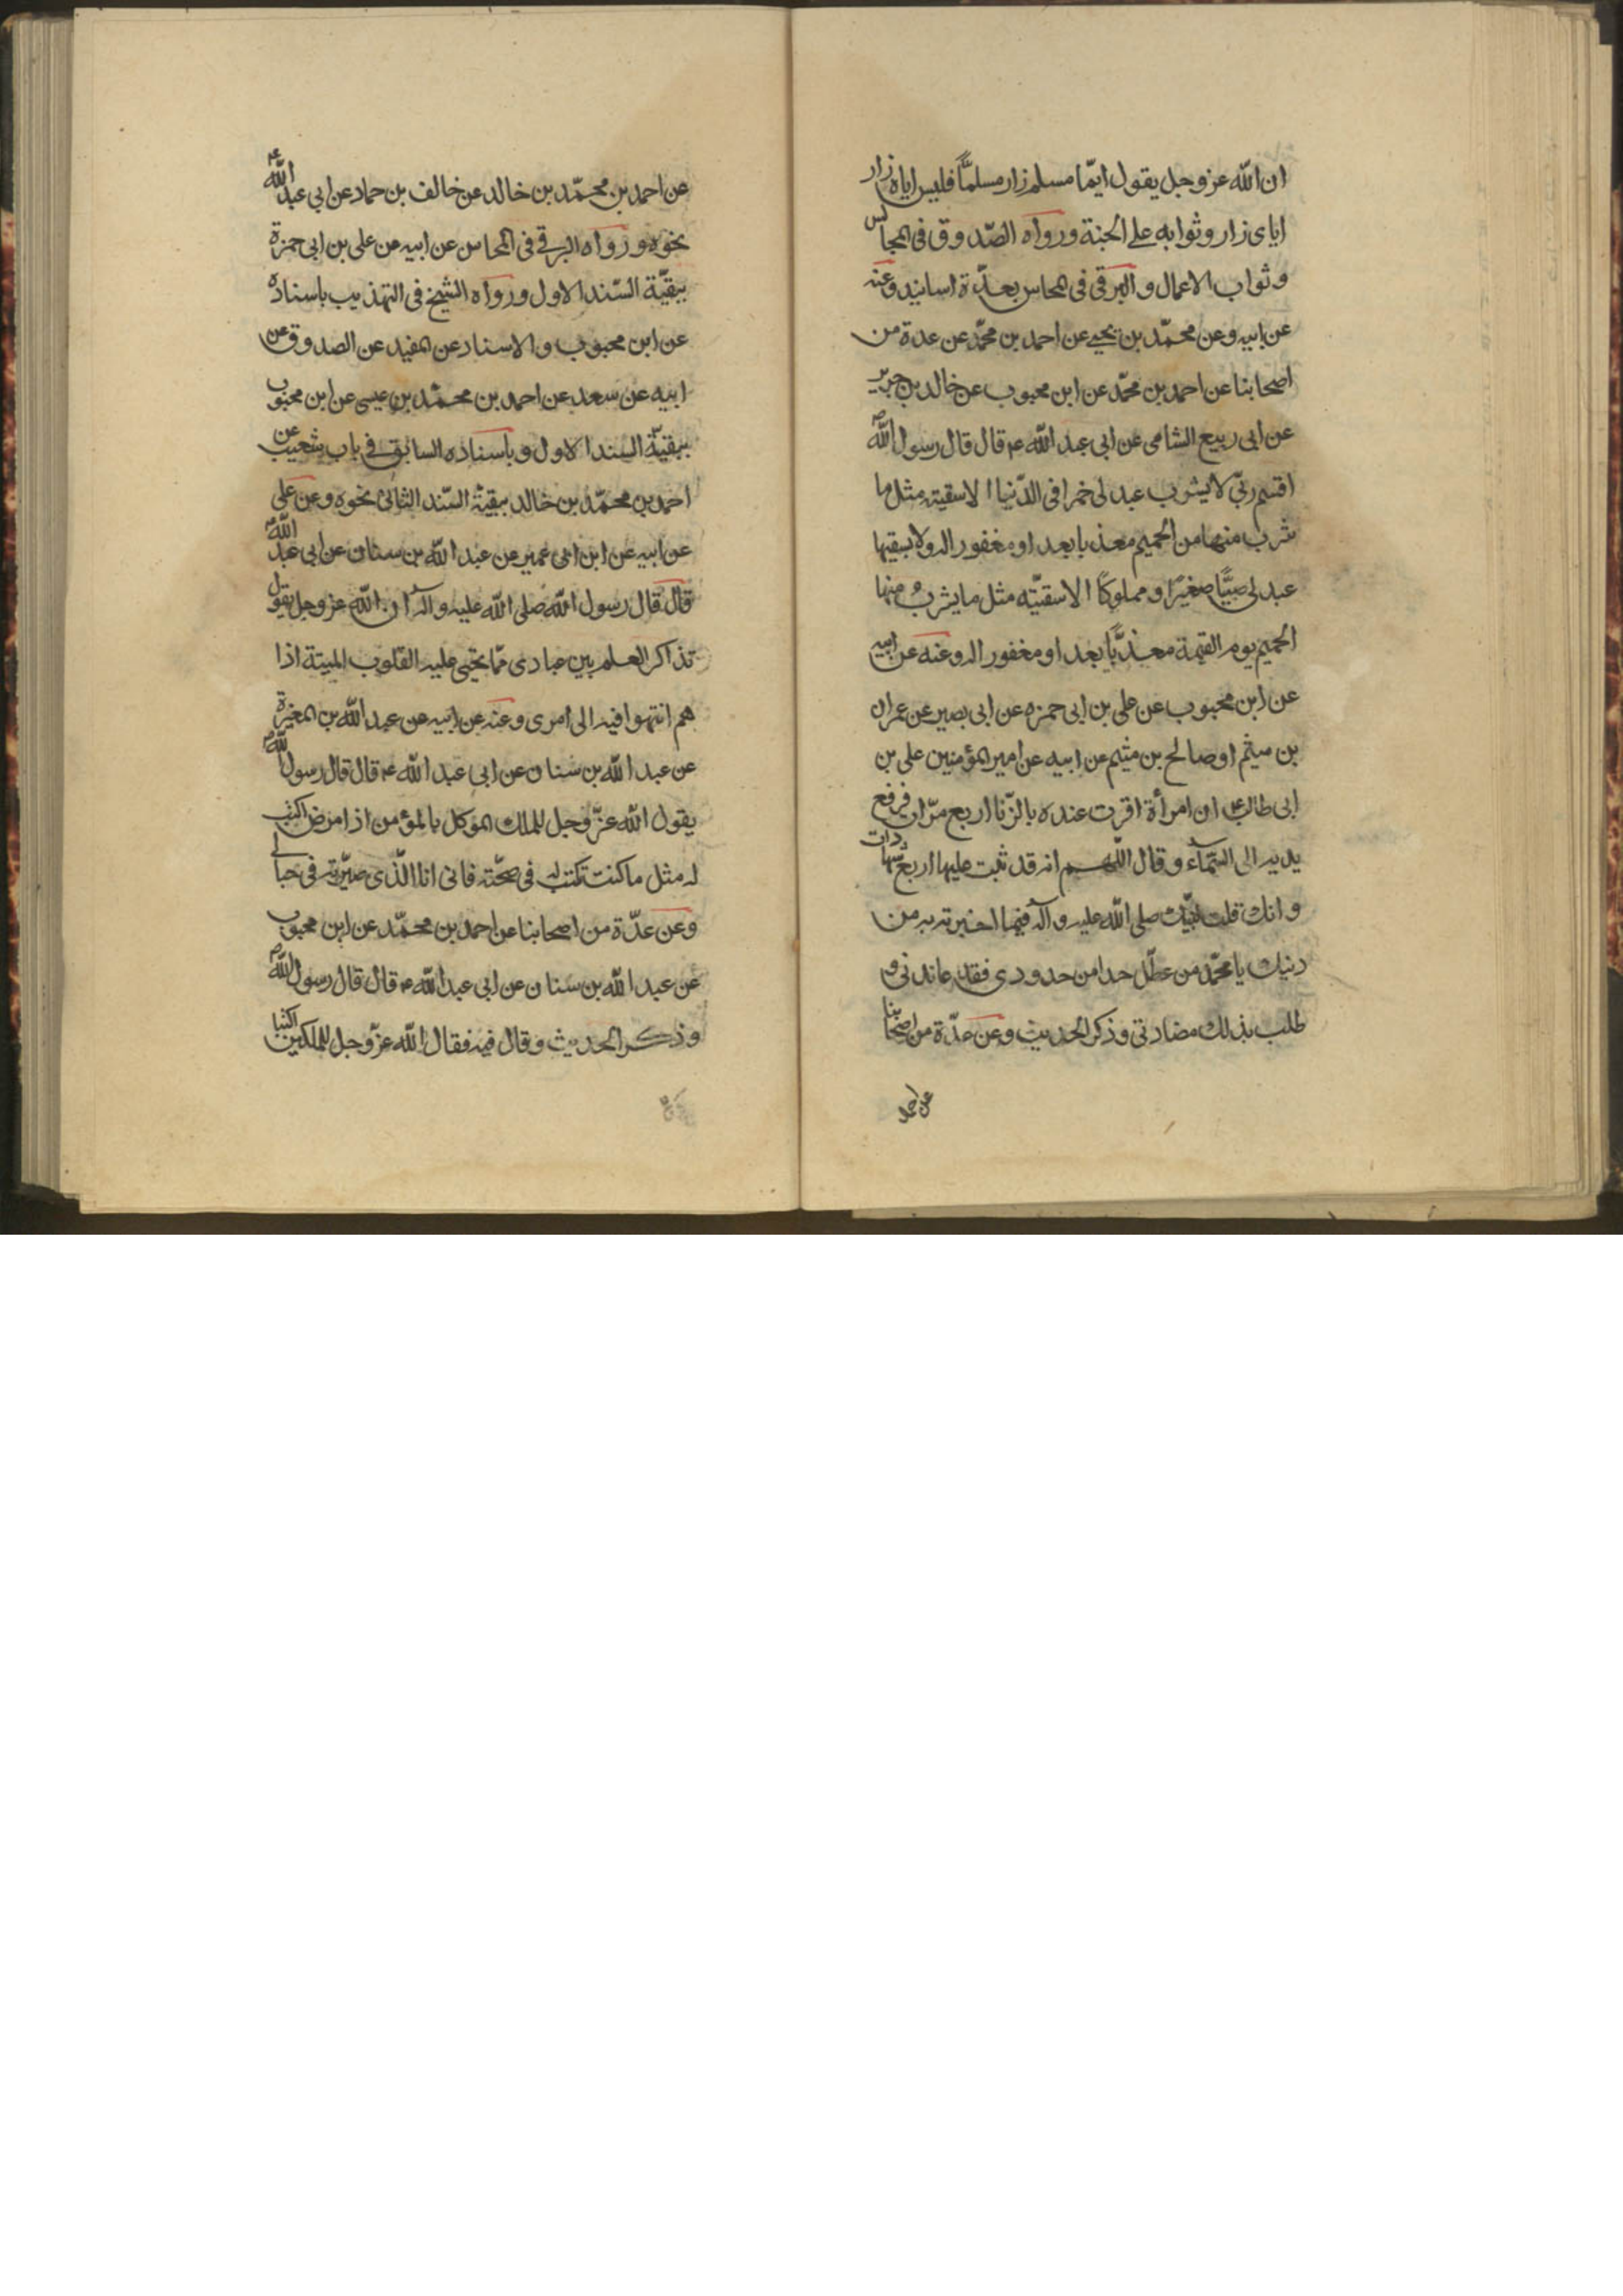 ان الله عز وجل يقول ايّما مسلم زار مسلمًا فليس اياه زار
اياى زار وثوابه على الجنة ورواه الصّدوق فى المجالس
وثواب الاعمال والبرقى فى المحاسن بعدّة اسانيد وعنه
عن ابيه وعن محمّد بن يحيى عن احمد بن محمّد عن عدة من
اصحابنا عن احمد بن محمّد عن ابن محبوب عن خالد بن جرير
عن ابى ربيع الشامى عن ابى عبد الله ع قال قال رسول الله ص
اقسم ربّى لا يشرب عبد لى خمرا فى الدّنيا الا سقيته مثل ما
شرب منها من الحميم معذبا بعد او مغفور اله ولا يسقيها
عبد لى صبيًّا صغيرًا و مملوكًا الا سقيّته مثل ما يشرب منها
الحميم يوم القيمة معذّبًا بعد او مغفور اله وعنه عن ابيه
عن ابن محبوب عن على بن ابى حمزه عن ابى بصير عن عمران
بن ميثم او صالح بن ميثم عن ابيه عن امير المؤمنين على بن
ابى طالب ع ان امرأة اقرت عنده بالزّنا اربع مرّات فرفع
يديه الى السّمآء وقال اللّهم انه قد ثبت عليها اربع شهادات
وانك قلت لنبيّك صلى الله عليه وآله فيما اخبرته به من
دينك يا محمّد من عطّل حدا من حدودى فقد عاندنى و
طلب بذلك مضادتى وذكر الحديث وعن عدّة من اصحابنا
عن احمد
عن احمد بن محمّد بن خالد عن خالف بن حماد عن ابى عبد الله ع
نحوه ورواه البرقى فى المحاسن عن ابيه عن على بن ابى حمزة
ببقيّة السّند الاول ورواه الشيخ فى التهذيب باسناده
عن ابن محبوب والاسناد عن المفيد عن الصدوق عن
ابيه عن سعد عن احمد بن محمّد بن عيسى عن ابن محبوب
ببقيّة السند الاول وباسناده السابق فى باب شعيب عن
احمد بن محمّد بن خالد ببقيّة السّند الثانى نحوه وعن على
عن ابيه عن ابن ابى عمير عن عبد الله بن سنان عن ابى عبد الله ع
قال قال رسول الله صلى الله عليه وآله ان الله عز وجل يقول
تذاكر العلم بين عبادى ممّا يحيى عليه القلوب الميتة اذا
هم انتهوا فيه الى امرى وعنه عن ابيه عن عبد الله بن المغيرة
عن عبد الله بن سنان عن ابى عبد الله ع قال قال رسول الله ص
يقول الله عزّ وجل للملك الموكل بالمؤمن اذا مرض اكتب
له مثل ما كنت تكتب له فى صحّته فانى انا الّذى صيّرته فى حبالى
وعن عدّة من اصحابنا عن احمد بن محمّد عن ابن محبوب
عن عبد الله بن سنان عن ابى عبد الله ع قال قال رسول الله ص
وذكر الحديث وقال فيه فقال الله عزّ وجل للملكين اكتبا